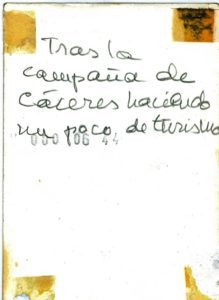 Tras la
campaña de
Cáceres haciendo
un poco de turismo
000 06 44